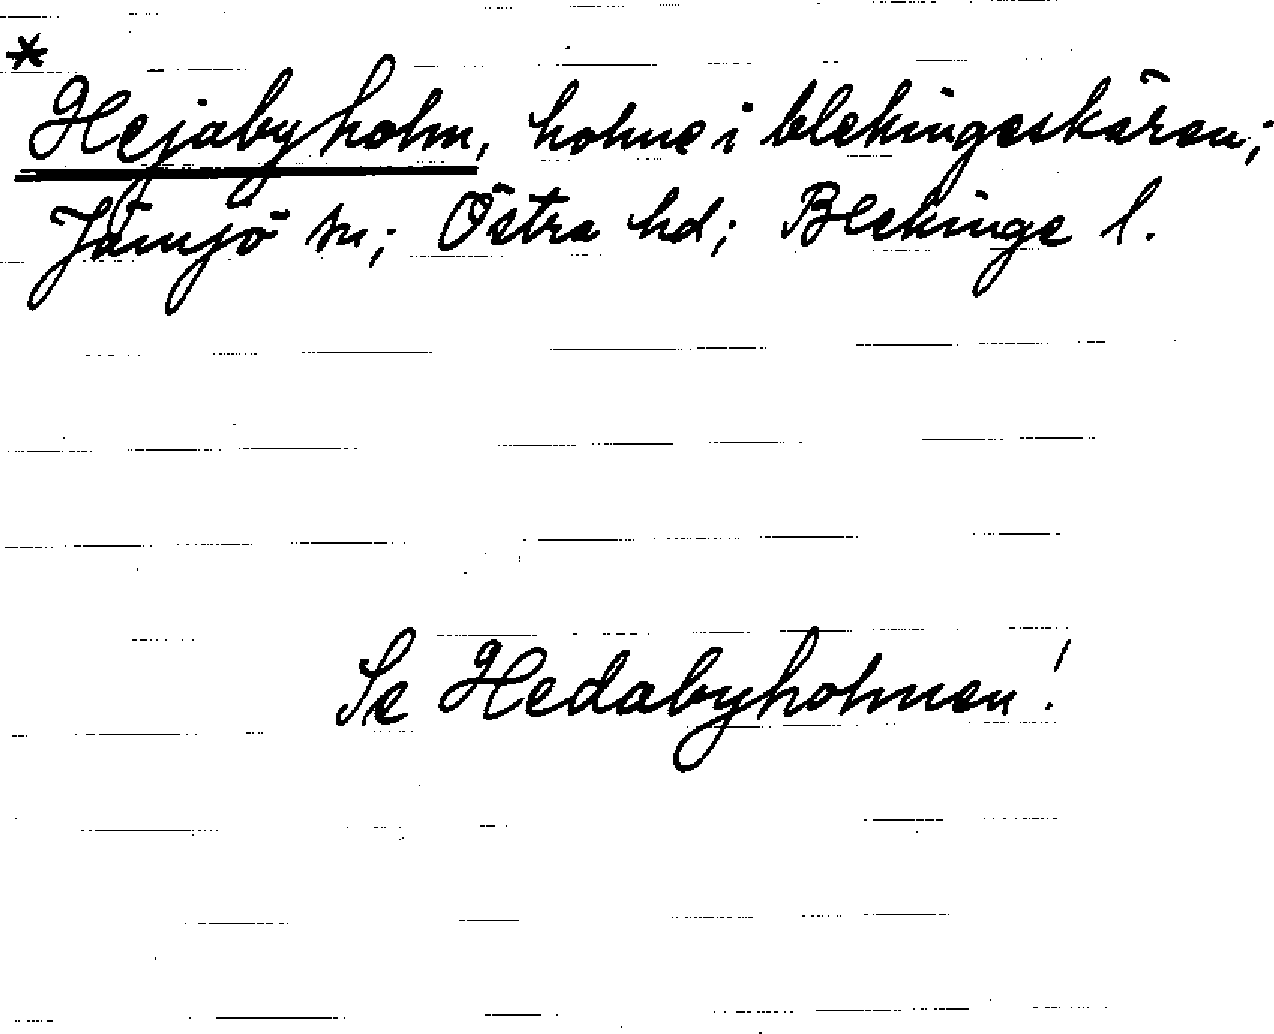 *
Hejabyholm, holme i blekingeskären;
Jämjö sn; Östra hd; Blekinge l.
Se Hedabyholmen!